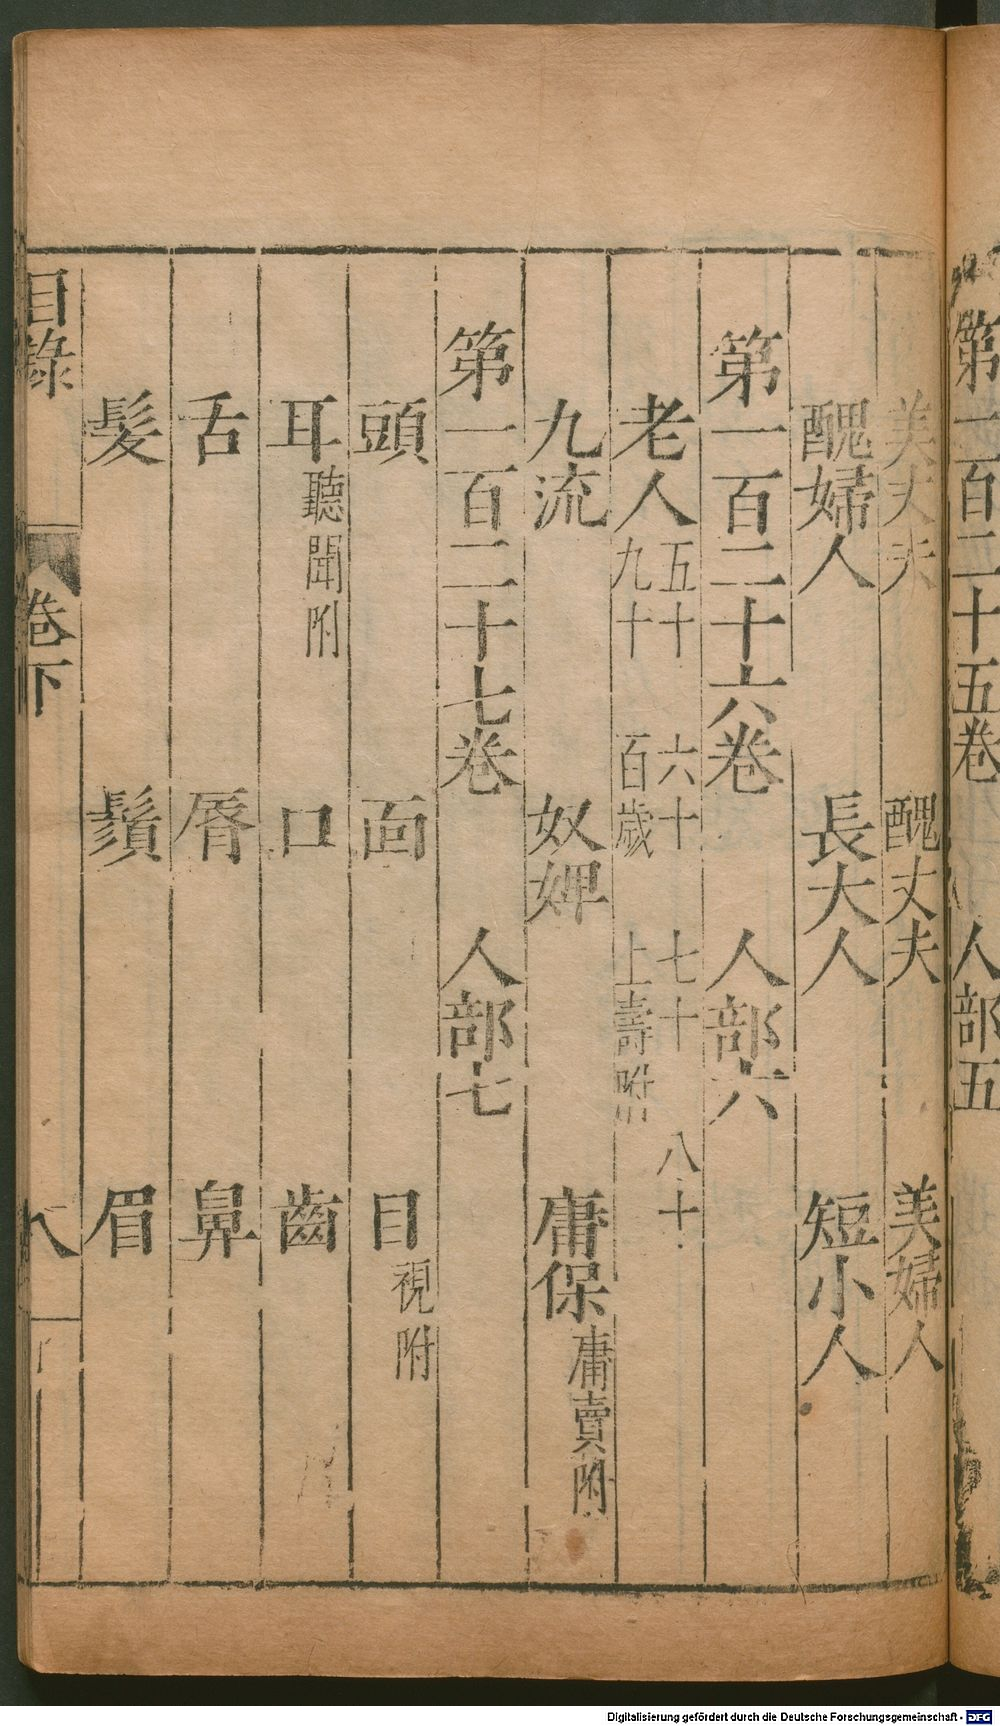 第一百二十五卷　人部五
美丈夫　醜丈夫　美婦人
醜婦人　長大人　短小人
第一百二十六卷　人部六
老人五十　六十　七十　八十　九十　百歲　上壽附
九流　奴婢　庸保庸賣附
第一百二十七卷　人部七
頭　面　目視附
耳聽聞附　口　齒
舌　脣　鼻
髮　鬚　眉
目錄　卷下　八
Digitalisierung gefördert durch die Deutsche Forschungsgemeinschaft - DFG